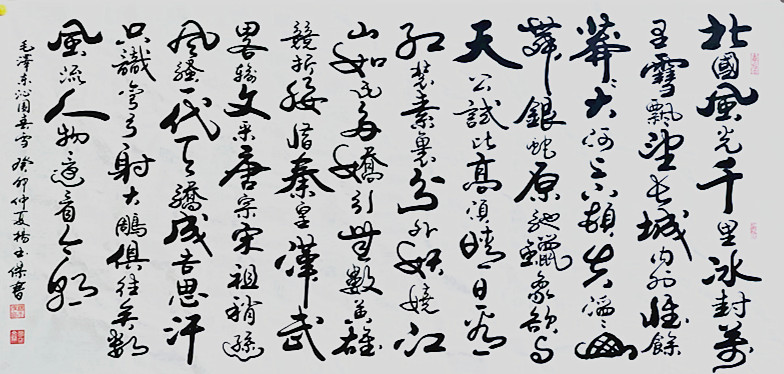 北國風光千里冰封萬
里雪飄望長城內外惟餘
莽々大河上下頓失滔々山
舞銀蛇原馳蠟象欲與
天公試比高須晴日看
紅裝素裹分外妖嬈江
山如此多嬌引無數英雄
競折腰惜秦皇漢武
略輸文采唐宗宋祖稍遜
風騷一代天驕成吉思汗
只識彎弓射大鵰俱往矣數
風流人物還看今朝
毛澤東沁園春雪 癸卯仲夏楊玉傑書